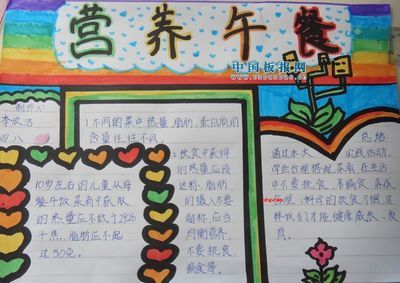 营养午餐
中国板报网
www.cnbanbao.cn
制作人:
李欣洁
四、八
1.不同的菜中热量、脂肪、蛋白质的
含量往往不同
10岁左右的儿童从每
餐午饭菜肴中获取
的热量应不低于2926
千焦,脂肪应不超
过50克。
2.饮食中获得
的热量应该
达标,脂肪
的摄入不要
超标,应当
均衡营养
不要挑食、
偏食等。
总结
通过本次 实践活动,
学会合理搭配菜肴,在生活
中不要挑食、不偏食,养成
良好、科学的饮食习惯,这
样我们才能健康成长、发
育。